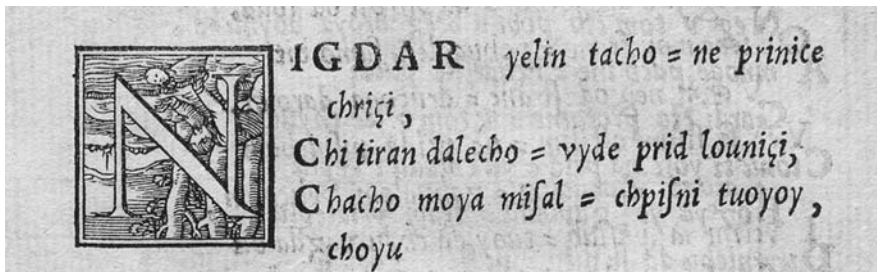 NIGDAR yelin tacho = ne prinice
chriçi,
Chi tiran dalecho = vyde prid louniçi,
Chacho moya miſal = chpiſni tuoyoy,
choyu